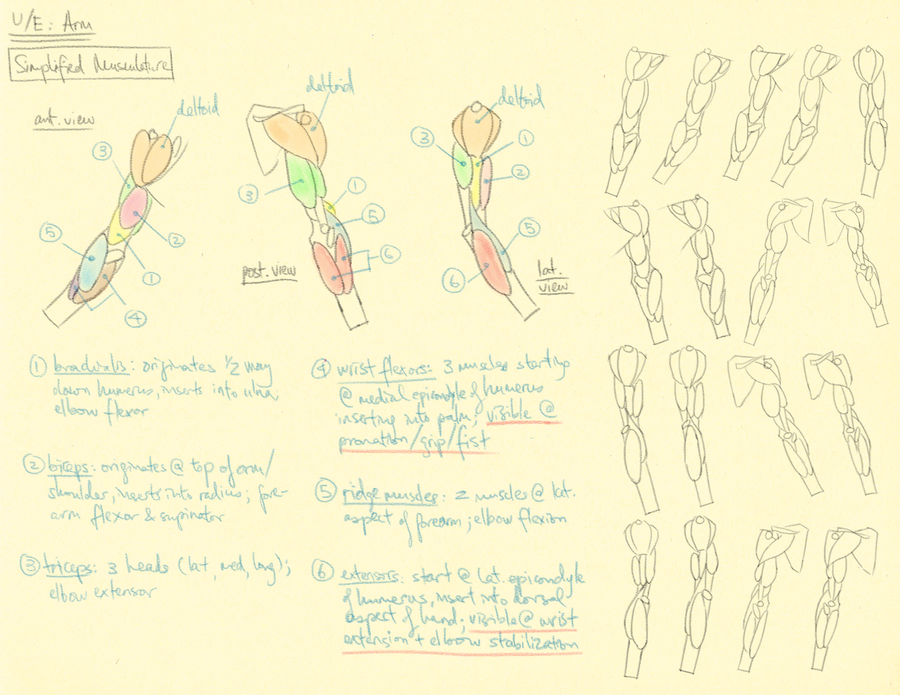 U/E: Arm
Simplified Musculature
ant. view
deltoid
3
5
2
1
4
deltoid
3
1
5
6
post. view
deltoid
3
1
2
5
6
lat.
view
1 brachialis: originates 1/2 way
down humerus, inserts into ulna
elbow flexor
2 biceps: originates @ top of arm/
shoulder, inserts into radius; fore-
arm flexor & supinator
3 triceps: 3 heads (lat, med, long);
elbow extensor
4 wrist flexors: 3 muscles starting
@ medial epicondyle of humerus
inserting into palm; visible @
pronation/grip/fist
5 ridge muscles: 2 muscles @ lat.
aspect of forearm; elbow flexion
6 extensors: start @ lat. epicondyle
of humerus, insert into dorsal
aspect of hand; visible @ wrist
extension + elbow stabilization